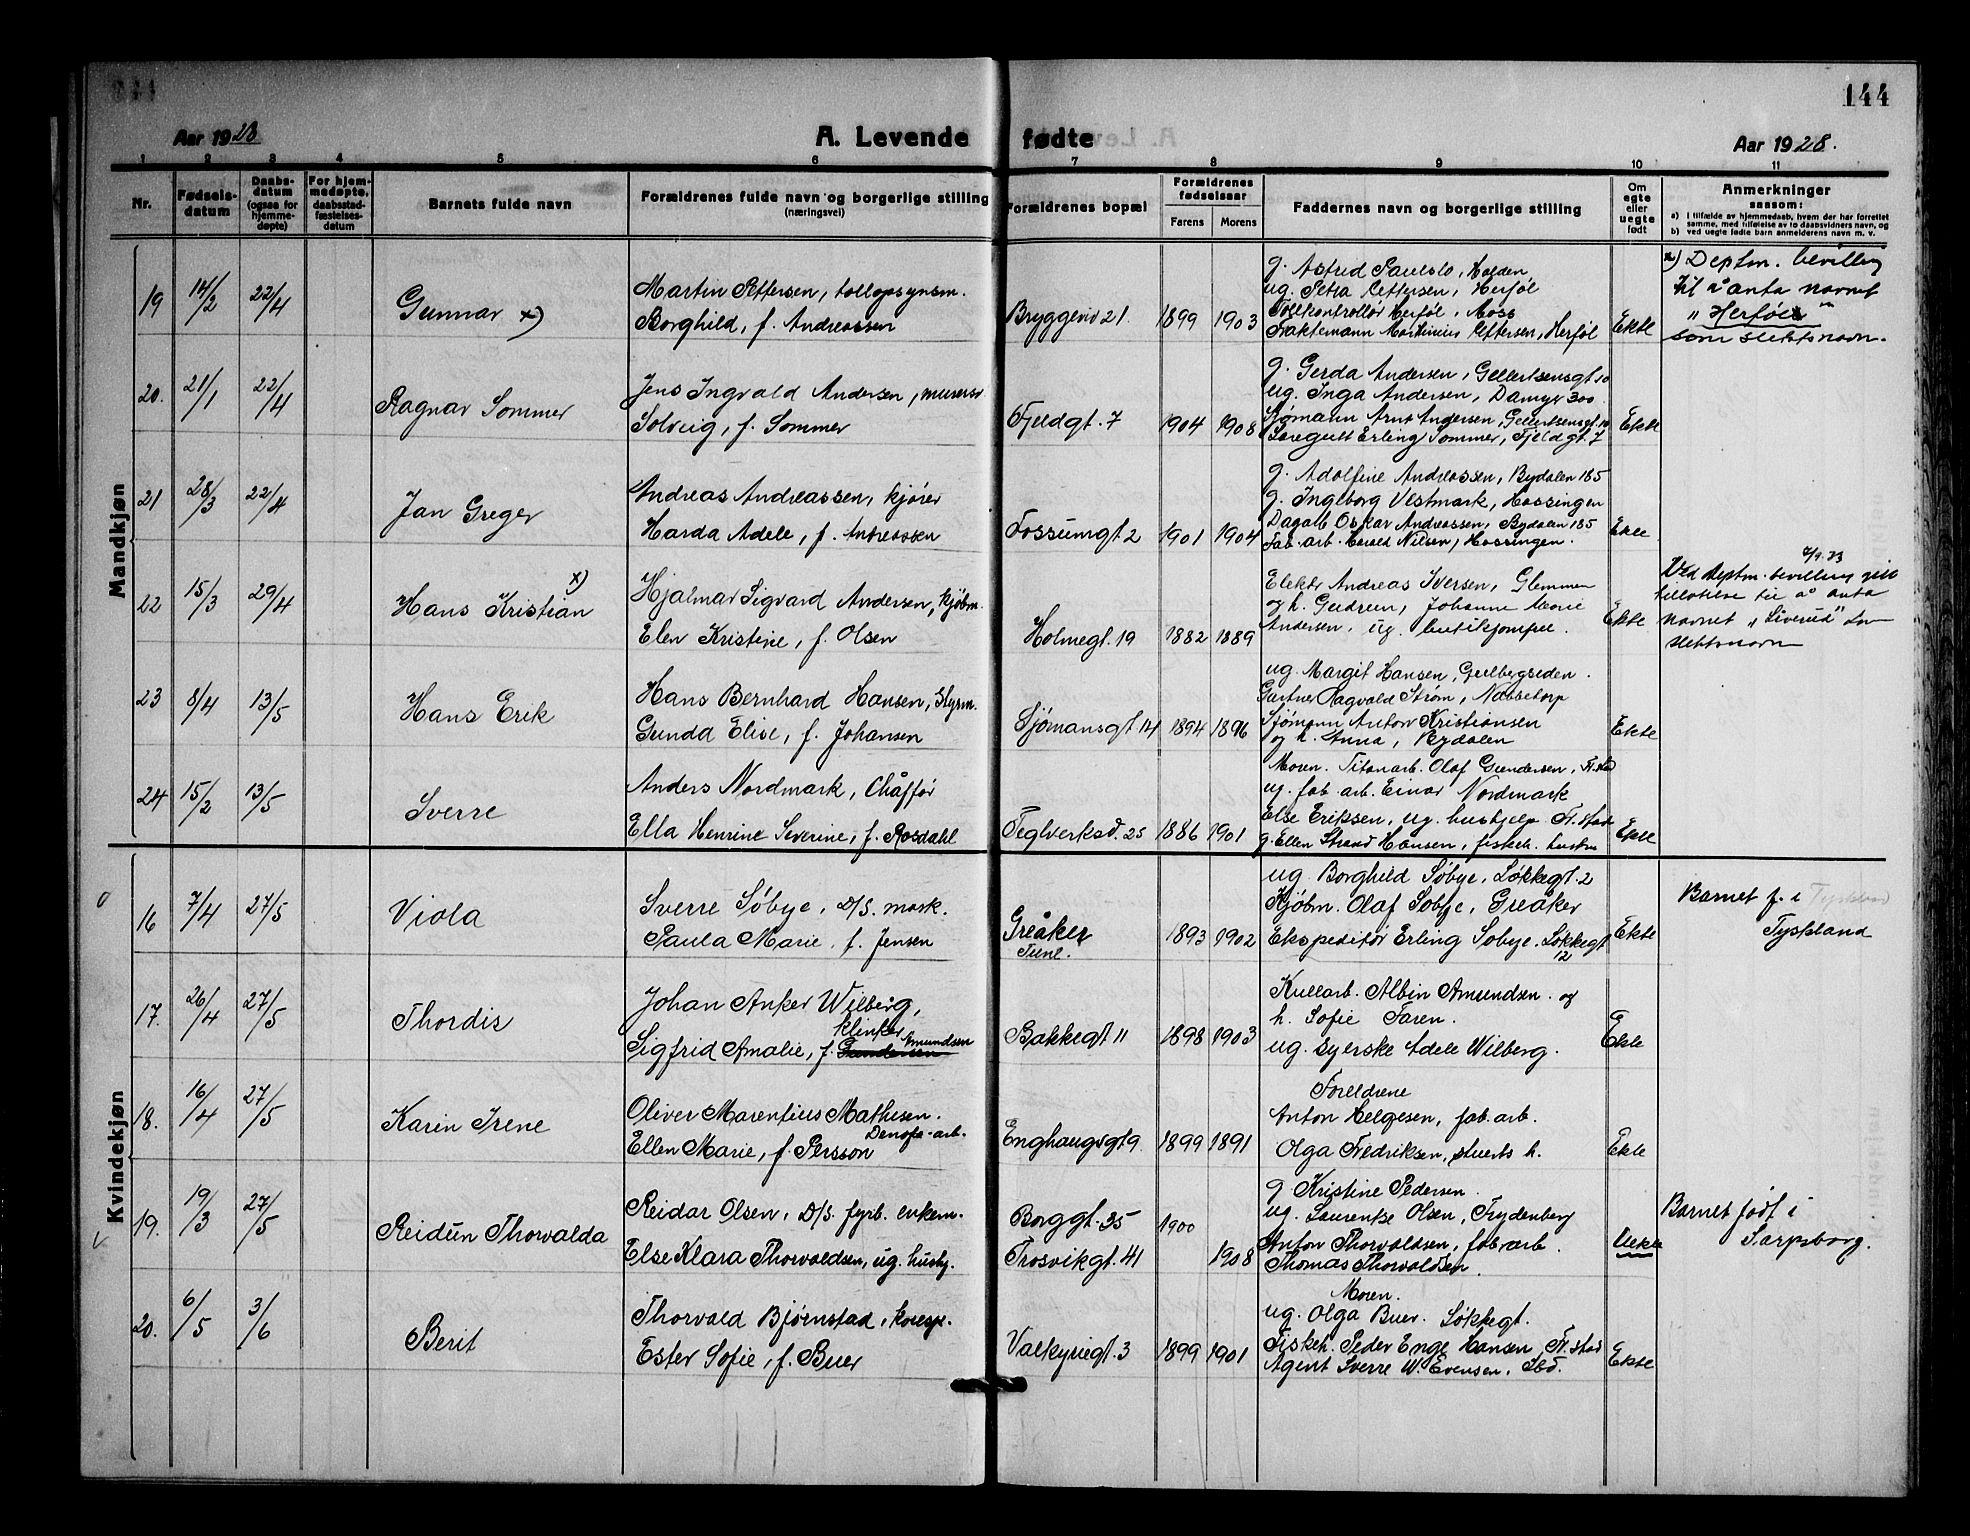 144
Aar 1928
A. Levende fødte
Aar 1928.
1 2 3 4 5 6 7 8 9 10 11
Nr.
Fødselsdatum
Daabsdatum (ogsaa for hjemmedøpte)
For hjemmedøpte, daabsstadfæstelsesdatum
Barnets fulde navn
Forældrenes fulde navn og borgerlige stilling (næringsvei)
Forældrenes bopæl
Forældrenes fødselsaar
Farens Morens
Faddernes navn og borgerlige stilling
Om egte eller uegte født
Anmerkninger saasom:
a) i tilfælde av hjemmedaab, hvem der har forrettet samme, med tilføielse av to daabsvidners navn, og
b) ved uegte fødte barn anmelderens navn m. v.
Mandkjøn
19 14/2 22/4 Gunnar x)
Martin Pettersen, tollopsynsm.
Borghild, f. Andreassen
Bryggeriv 21. 1899 1903
g. Astrid Paulslo, Halden
ug. Petra Pettersen, Herføl
Tollkontrollør Herføl, Moss
Fraktemann Martinius Pettersen, Herføl
Ekte
x) Deptm. bevilling
til å anta navnet
"Herføl"
som slektsnavn.
20. 21/1 22/4 Ragnar Sommer
Jens Ingvald Andersen, murersv
Solveig, f. Sommer
Fjeldgt. 7 1904 1908
g. Gerda Andersen, Gellertsensgt 10
ug. Inga Andersen, Damyr 300
Sjømann Arnt Andersen, Gellertsensgt 10
Erling Sommer, Fjeldgt. 7
Ekte
21 28/3 22/4 Jan Greger
Andreas Andreassen, kjører
Harda Adele, f. Andreassen
Fossumgt 2 1901 1904
g. Adolfine Andreassen, Bydalen 185
g. Ingeborg Vestmark, Hassingen
Dagarb Oskar Andreassen, Bydalen 185
Fab. arb. Harald Nilsen, Hassingen.
Ekte
22 15/3 29/4 Hans Kristian x)
Hjalmar Sigvard Andersen, kjøbm.
Elen Kristine, f. Olsen
Holmegt. 19 1882 1889
Elektr Andreas Iversen, Glemmen
og h. Gudrun, Johanne Marie
Andersen, ug. butikjomfru.
Ekte
Ved Deptm. bevilling gitt
tillatelse til å anta
navnet "Siverud" som
slektsnavn
23 8/4 13/5 Hans Erik
Hans Bernhard Hansen, Styrm.
Gunda Elise, f. Johansen
Sjømansgt 14 1894 1896
ug. Margit Hansen, Gulbergsiden.
Gartner Ragvald Strøm, Nabbetorp
Sjømann Anton Kristiansen
og h. Anna, Bydalen
Ekte
24 15/2 13/5 Sverre
Anders Nordmark, Chåffør
Ella Henrine Severine, f. Rosdahl
Teglverksd. 25 1886 1901
Moren. Titanarb. Olaf Gundersen, Fr.stad
ug. fab arb. Einar Nordmark
Else Eriksen, ug. hushjelp Fr.stad
g. Ellen Strand Hansen, fiskeh. hustru
Ekte
Kvindekjøn
16 7/4 27/5 Viola
Sverre Søbye, D/S. mask.
Paula Marie, f. Jensen
Greåker
Tune.
1893 1902
ug. Borghild Søbye, Løkkegt. 2
Kjøbm. Olaf Søbye, Greåker
Ekspeditør Erling Søbye. Løkkegt
12
Ekte
Barnet f. i Tyskland
Tyskland
17. 26/4 27/5 Thordis
Johan Anker Wilberg,
klinker
Sigfrid Amalie, f. Gundersen Amundsen
Bakkegt 11 1898 1903
Kullarb. Albin Amundsen. og
h. Sofie Faren.
ug. syerske Adele Wilberg.
Ekte
18. 16/4 27/5 Karin Irene
Oliver Marentius Mathisen.
Denofa-arb.
Ellen Marie, f. Persson
Enghaugsgt 9 1899 1891
Foreldrene
Anton Helgesen, fab. arb.
Olga Fredriksen, stuerts h.
Ekte
19. 19/3 27/5 Reidun Thorvalda
Reidar Olsen, D/S. fyrb. enkem.
Else Klara Thorvaldsen, ug. hushj.
Borggt. 35 1900
Trosvikgt. 41 1908
g. Kristine Pedersen.
ug. Laurentse Olsen, Frydenberg
Anton Thorvaldsen, fabrarb.
Thomas Thorvaldsen.
Uekte
Barnet født i
Sarpsborg.
20. 6/5 3/6 Berit
Thorvald Bjørnstad, koresp.
Ester Sofie, f. Buer
Valkyriegt. 3 1899 1901
Moren.
ug. Olga Buer. Løkkegt.
Fiskeh. Peder Enge Hansen, Fr.stad
Agent Sverre W. Evensen, Ibd.
Ekte